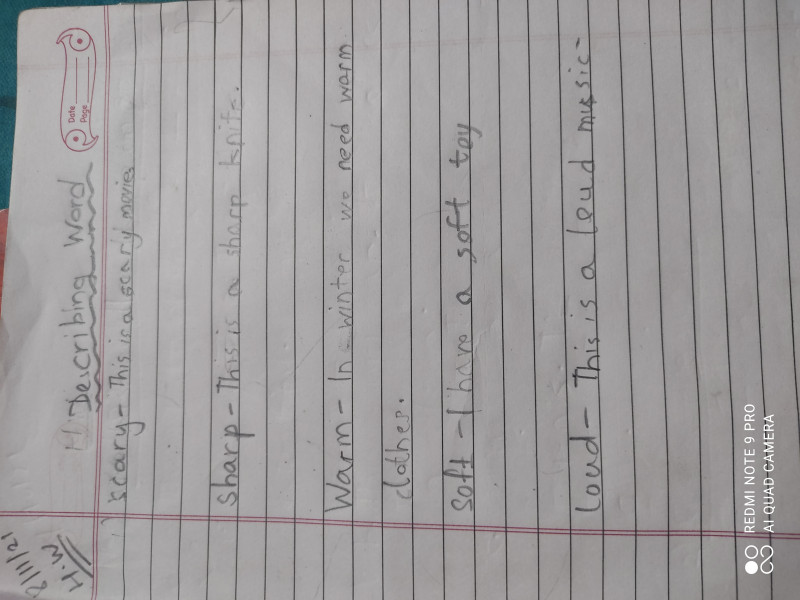 2/11/21
H.W
Date
Page
Describing Word
scary - This is a scary movies
Sharp - This is a sharp knife.
Warm - In winter we need warm
clothes.
Soft - I have a soft toy
Loud - This is a loud music -
REDMI NOTE 9 PRO
AI QUAD CAMERA